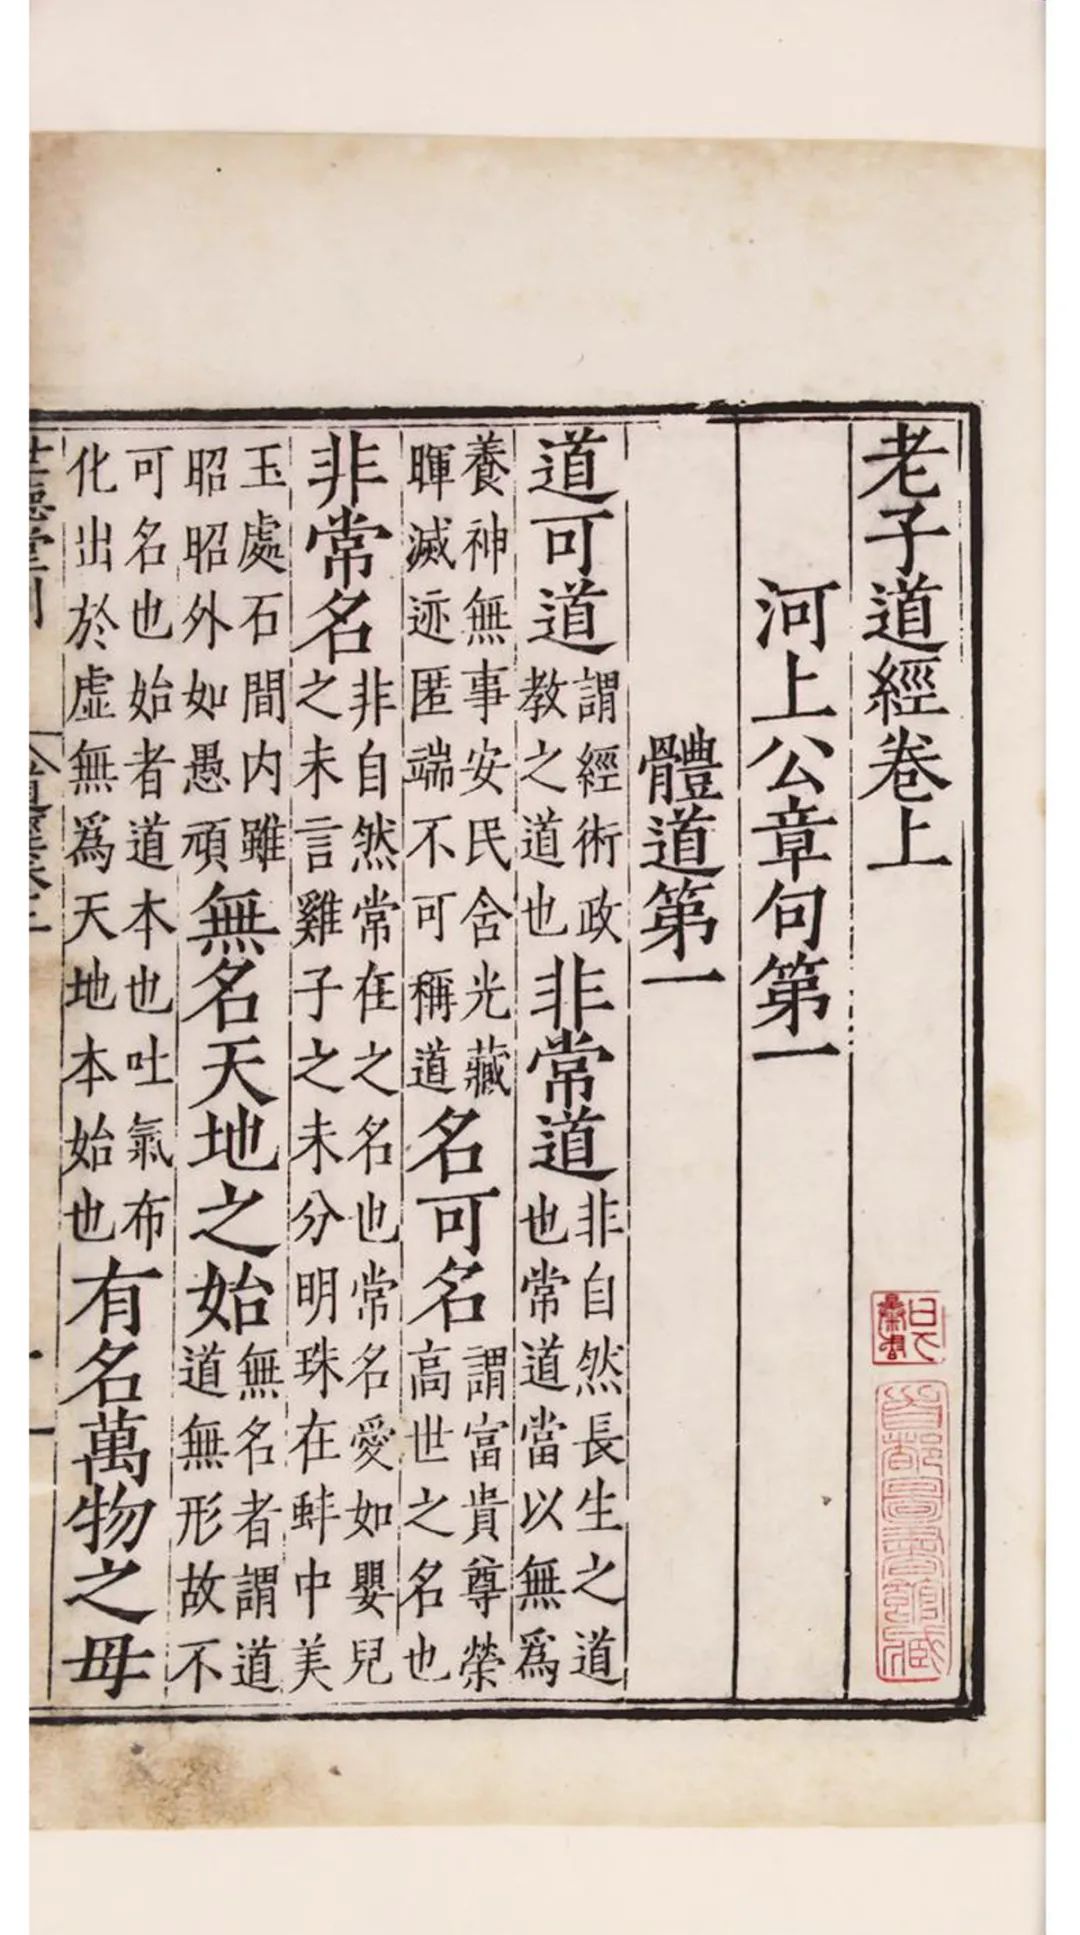 老子道經卷上
河上公章句第一
體道第一
道可道謂經術政教之道也非常道非自然長生之道也常道當以無爲
養神無事安民含光藏暉滅迹匿端不可稱道名可名謂富貴尊榮高世之名也
非常名非自然常在之名也常名愛如嬰兒之未言雞子之未分明珠在蚌中美
玉處石間内雖昭昭外如愚頑無名天地之始無名者謂道道無形故不
可名也始者道本也吐氣布化出於虛無爲天地本始也有名萬物之母
首都圖書館藏